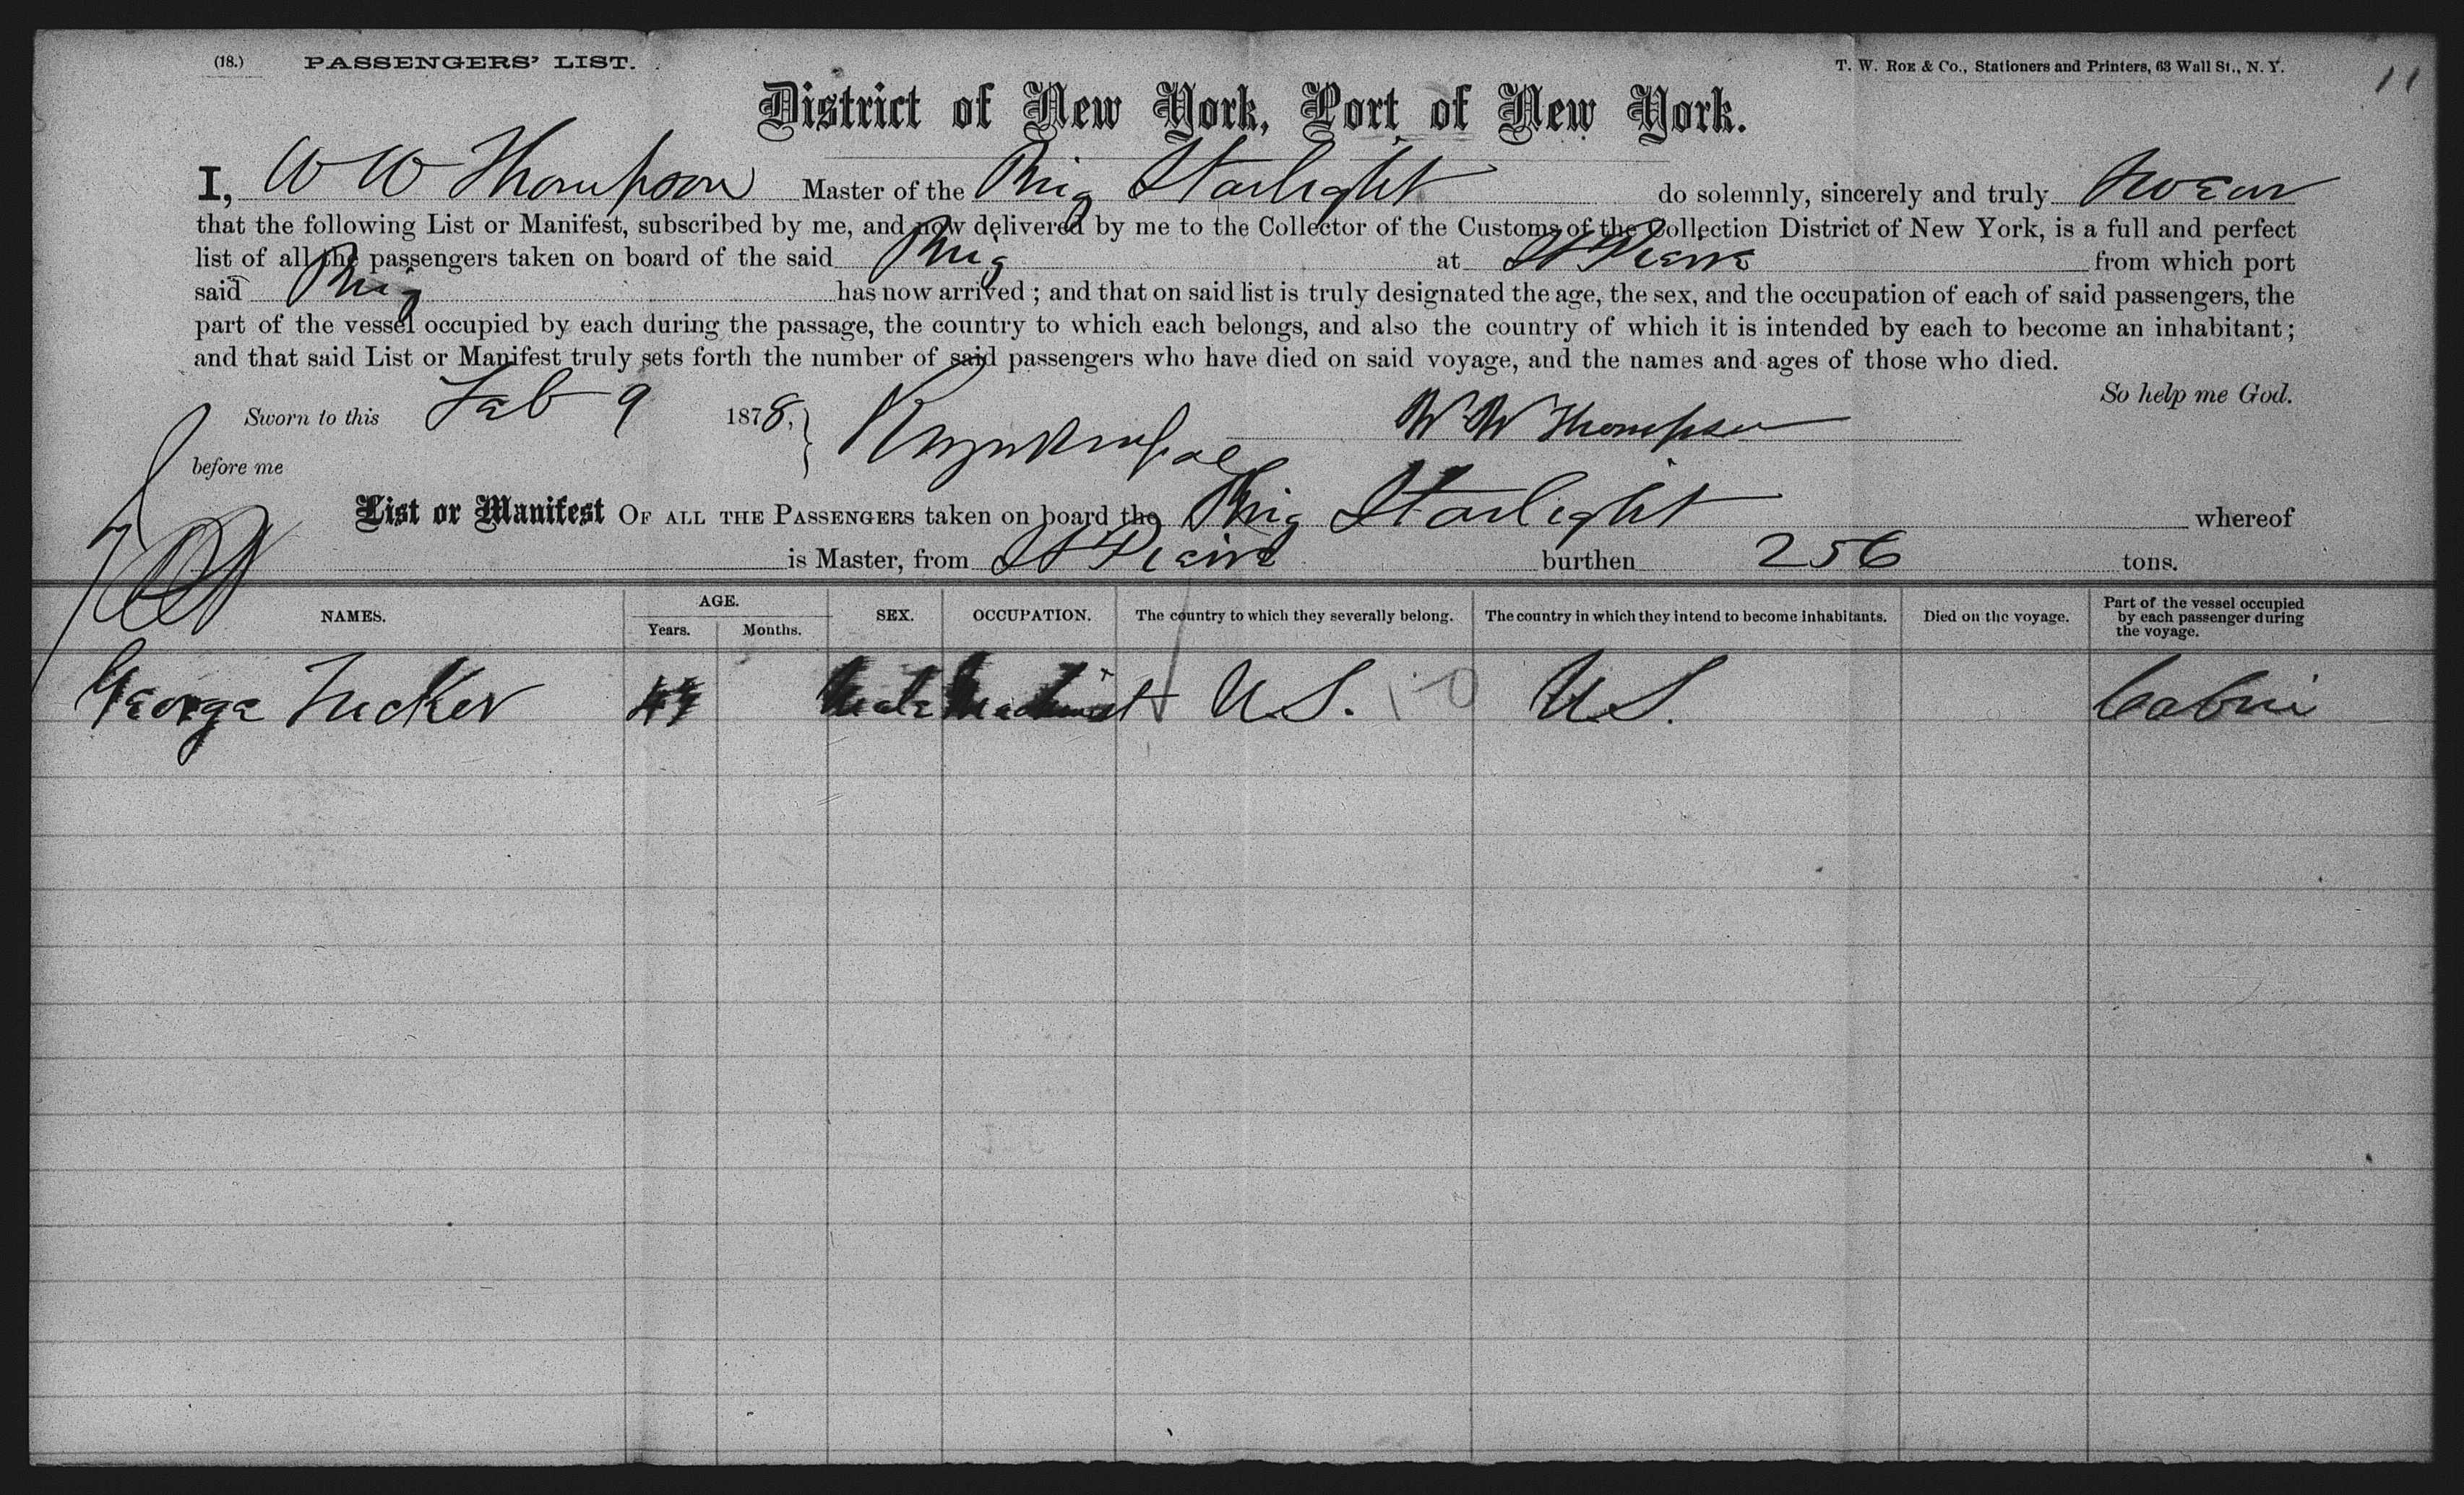 (18.) PASSENGERS' LIST. T. W. ROE & Co., Stationers and Printers, 63 Wall St., N. Y. 11
District of New York, Port of New York.
I, W W Thompson Master of the Brig Starlight do solemnly, sincerely and truly swear
that the following List or Manifest, subscribed by me, and now delivered by me to the Collector of the Customs of the Collection District of New York, is a full and perfect
list of all the passengers taken on board of the said Brig at St Pierre from which port
said Brig has now arrived ; and that on said list is truly designated the age, the sex, and the occupation of each of said passengers, the
part of the vessel occupied by each during the passage, the country to which each belongs, and also the country of which it is intended by each to become an inhabitant ;
and that said List or Manifest truly sets forth the number of said passengers who have died on said voyage, and the names and ages of those who died.
So help me God.
Sworn to this Feb 9 1878, W W Thompson
before me
List or Manifest OF ALL THE PASSENGERS taken on board the Brig Starlight whereof
is Master, from St Pierre burthen 256 tons.
NAMES. AGE. Years. Months. SEX. OCCUPATION. The country to which they severally belong. The country in which they intend to become inhabitants. Died on the voyage. Part of the vessel occupied by each passenger during the voyage.
George Tucker Male Machinist U.S. U S. Cabin